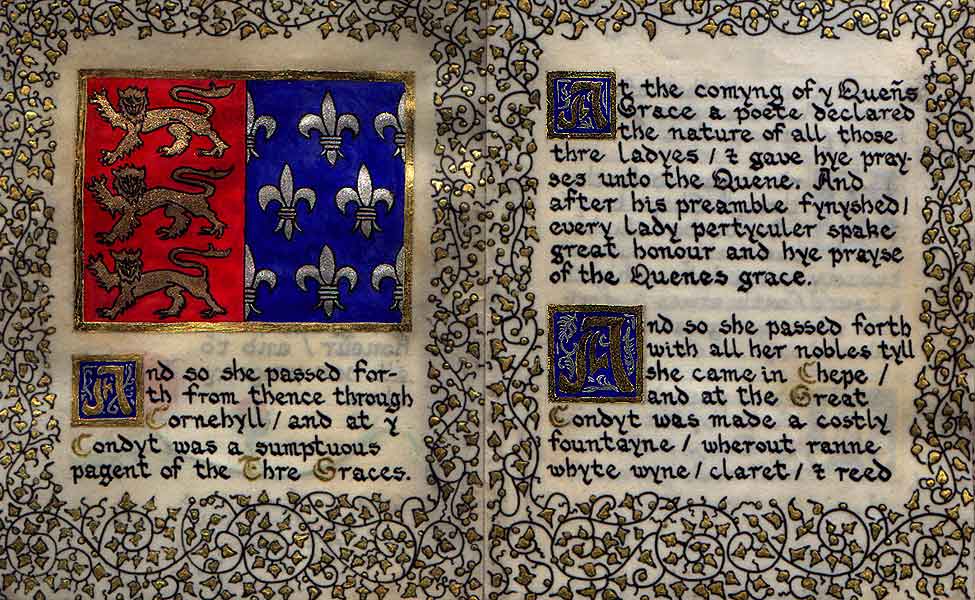 And so she passed for-
th from thence through
Cornehyll / and at y
Condyt was a sumptuous
pagent of the Thre Graces.
At the comyng of y Queñs
Grace a poete declared
the nature of all those
thre ladyes / ⁊ gave hye pray-
ses unto the Quene. And
after his preamble fynyshed /
every lady pertyculer spake
great honour and hye prayse
of the Quenes grace.
And so she passed forth
with all her nobles tyll
she came in Chepe /
and at the Great
Condyt was made a costly
fountayne / wherout ranne
whyte wyne / claret / ⁊ reed